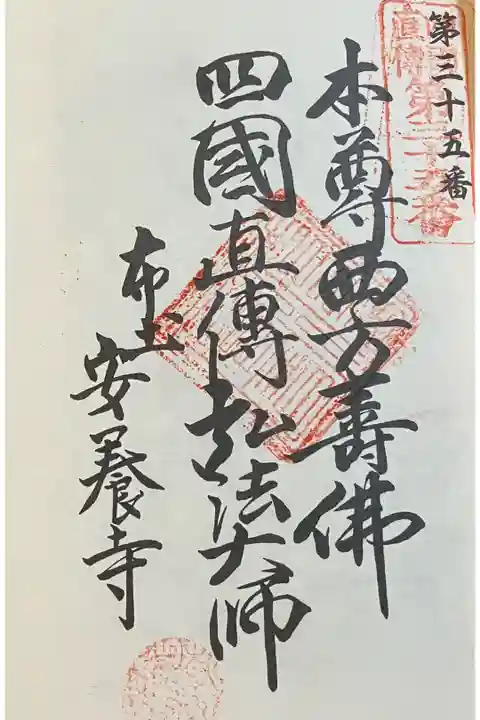 第三十五番
本尊西方壽佛
四國直傳弘法大師
布土
安養寺
直傳
第三十五番